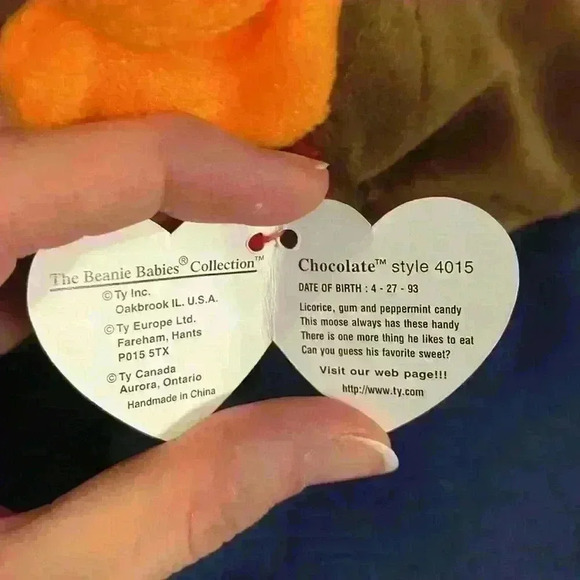 The Beanie Babies® Collection™
© Ty Inc.
Oakbrook IL. U.S.A.
© Ty Europe Ltd.
Fareham, Hants
P015 5TX
© Ty Canada
Aurora, Ontario
Handmade in China
Chocolate™ style 4015
DATE OF BIRTH : 4 - 27 - 93
Licorice, gum and peppermint candy
This moose always has these handy
There is one more thing he likes to eat
Can you guess his favorite sweet?
Visit our web page!!!
http://www.ty.com